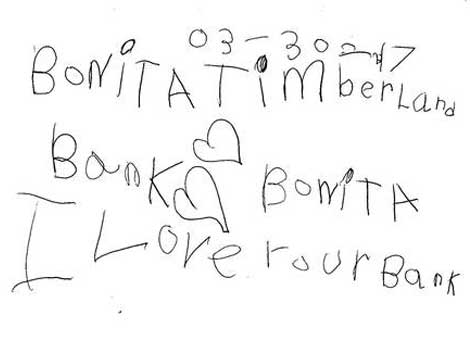 03-30-17
BONiTA TimberLand
Bank BONiTA
I Love rour Bank